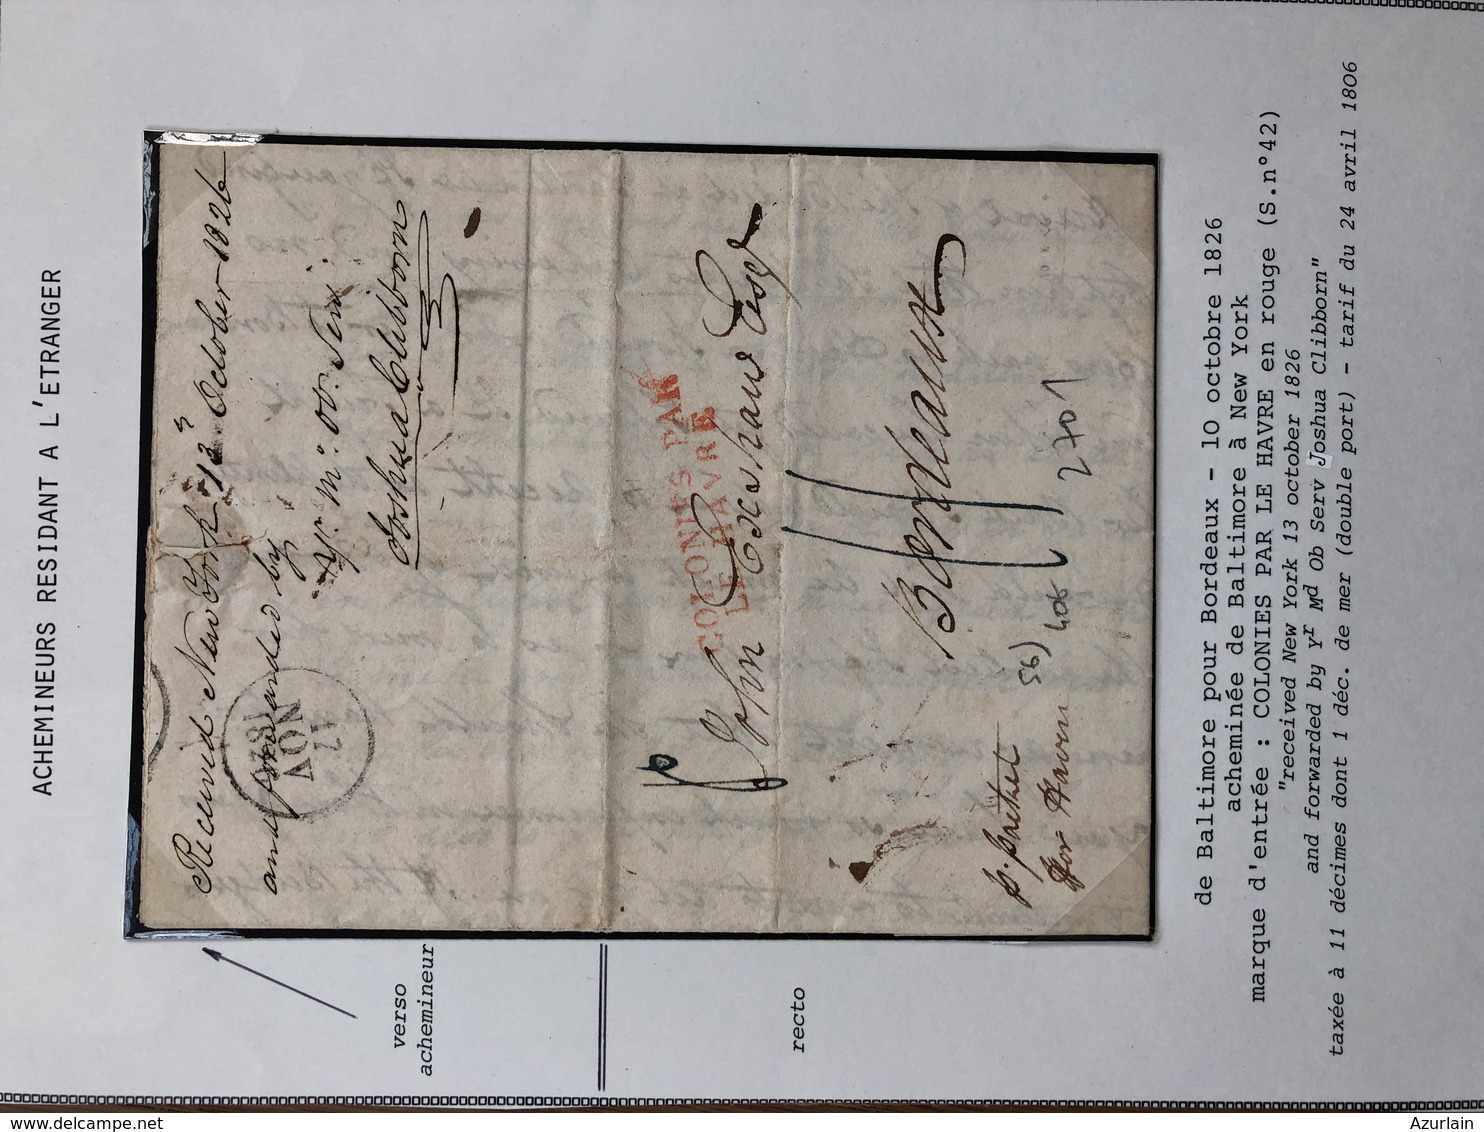 ACHEMINEURS RESIDANT A L'ETRANGER
verso
achemineur
Received New York 13 October 1826
and forwarded by
Yr. Mo. Ob. Serv
Joshua Clibborn
17
NOV
1826
recto
COLONIES PAR
LE HAVRE
John Exshaw Esqr
Bordeaux
p. packet
for Havre
56)
406
2701
de Baltimore pour Bordeaux - 10 octobre 1826
acheminée de Baltimore à New York
marque d'entrée : COLONIES PAR LE HAVRE en rouge (S.n°42)
"received New York 13 october 1826
and forwarded by Yr Md Ob Serv Joshua Clibborn"
taxée à 11 décimes dont 1 déc. de mer (double port) - tarif du 24 avril 1806
delcampe.net
Azurlain